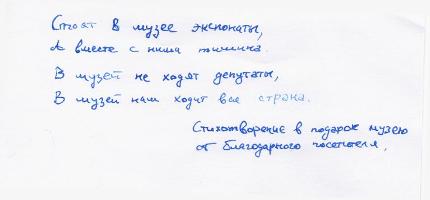 Стоят в музее экспонаты,
А вместе с ними тишина.
В музей не ходят депутаты,
В музей наш ходит вся страна.
Стихотворение в подарок музею
от благодарного посетителя,